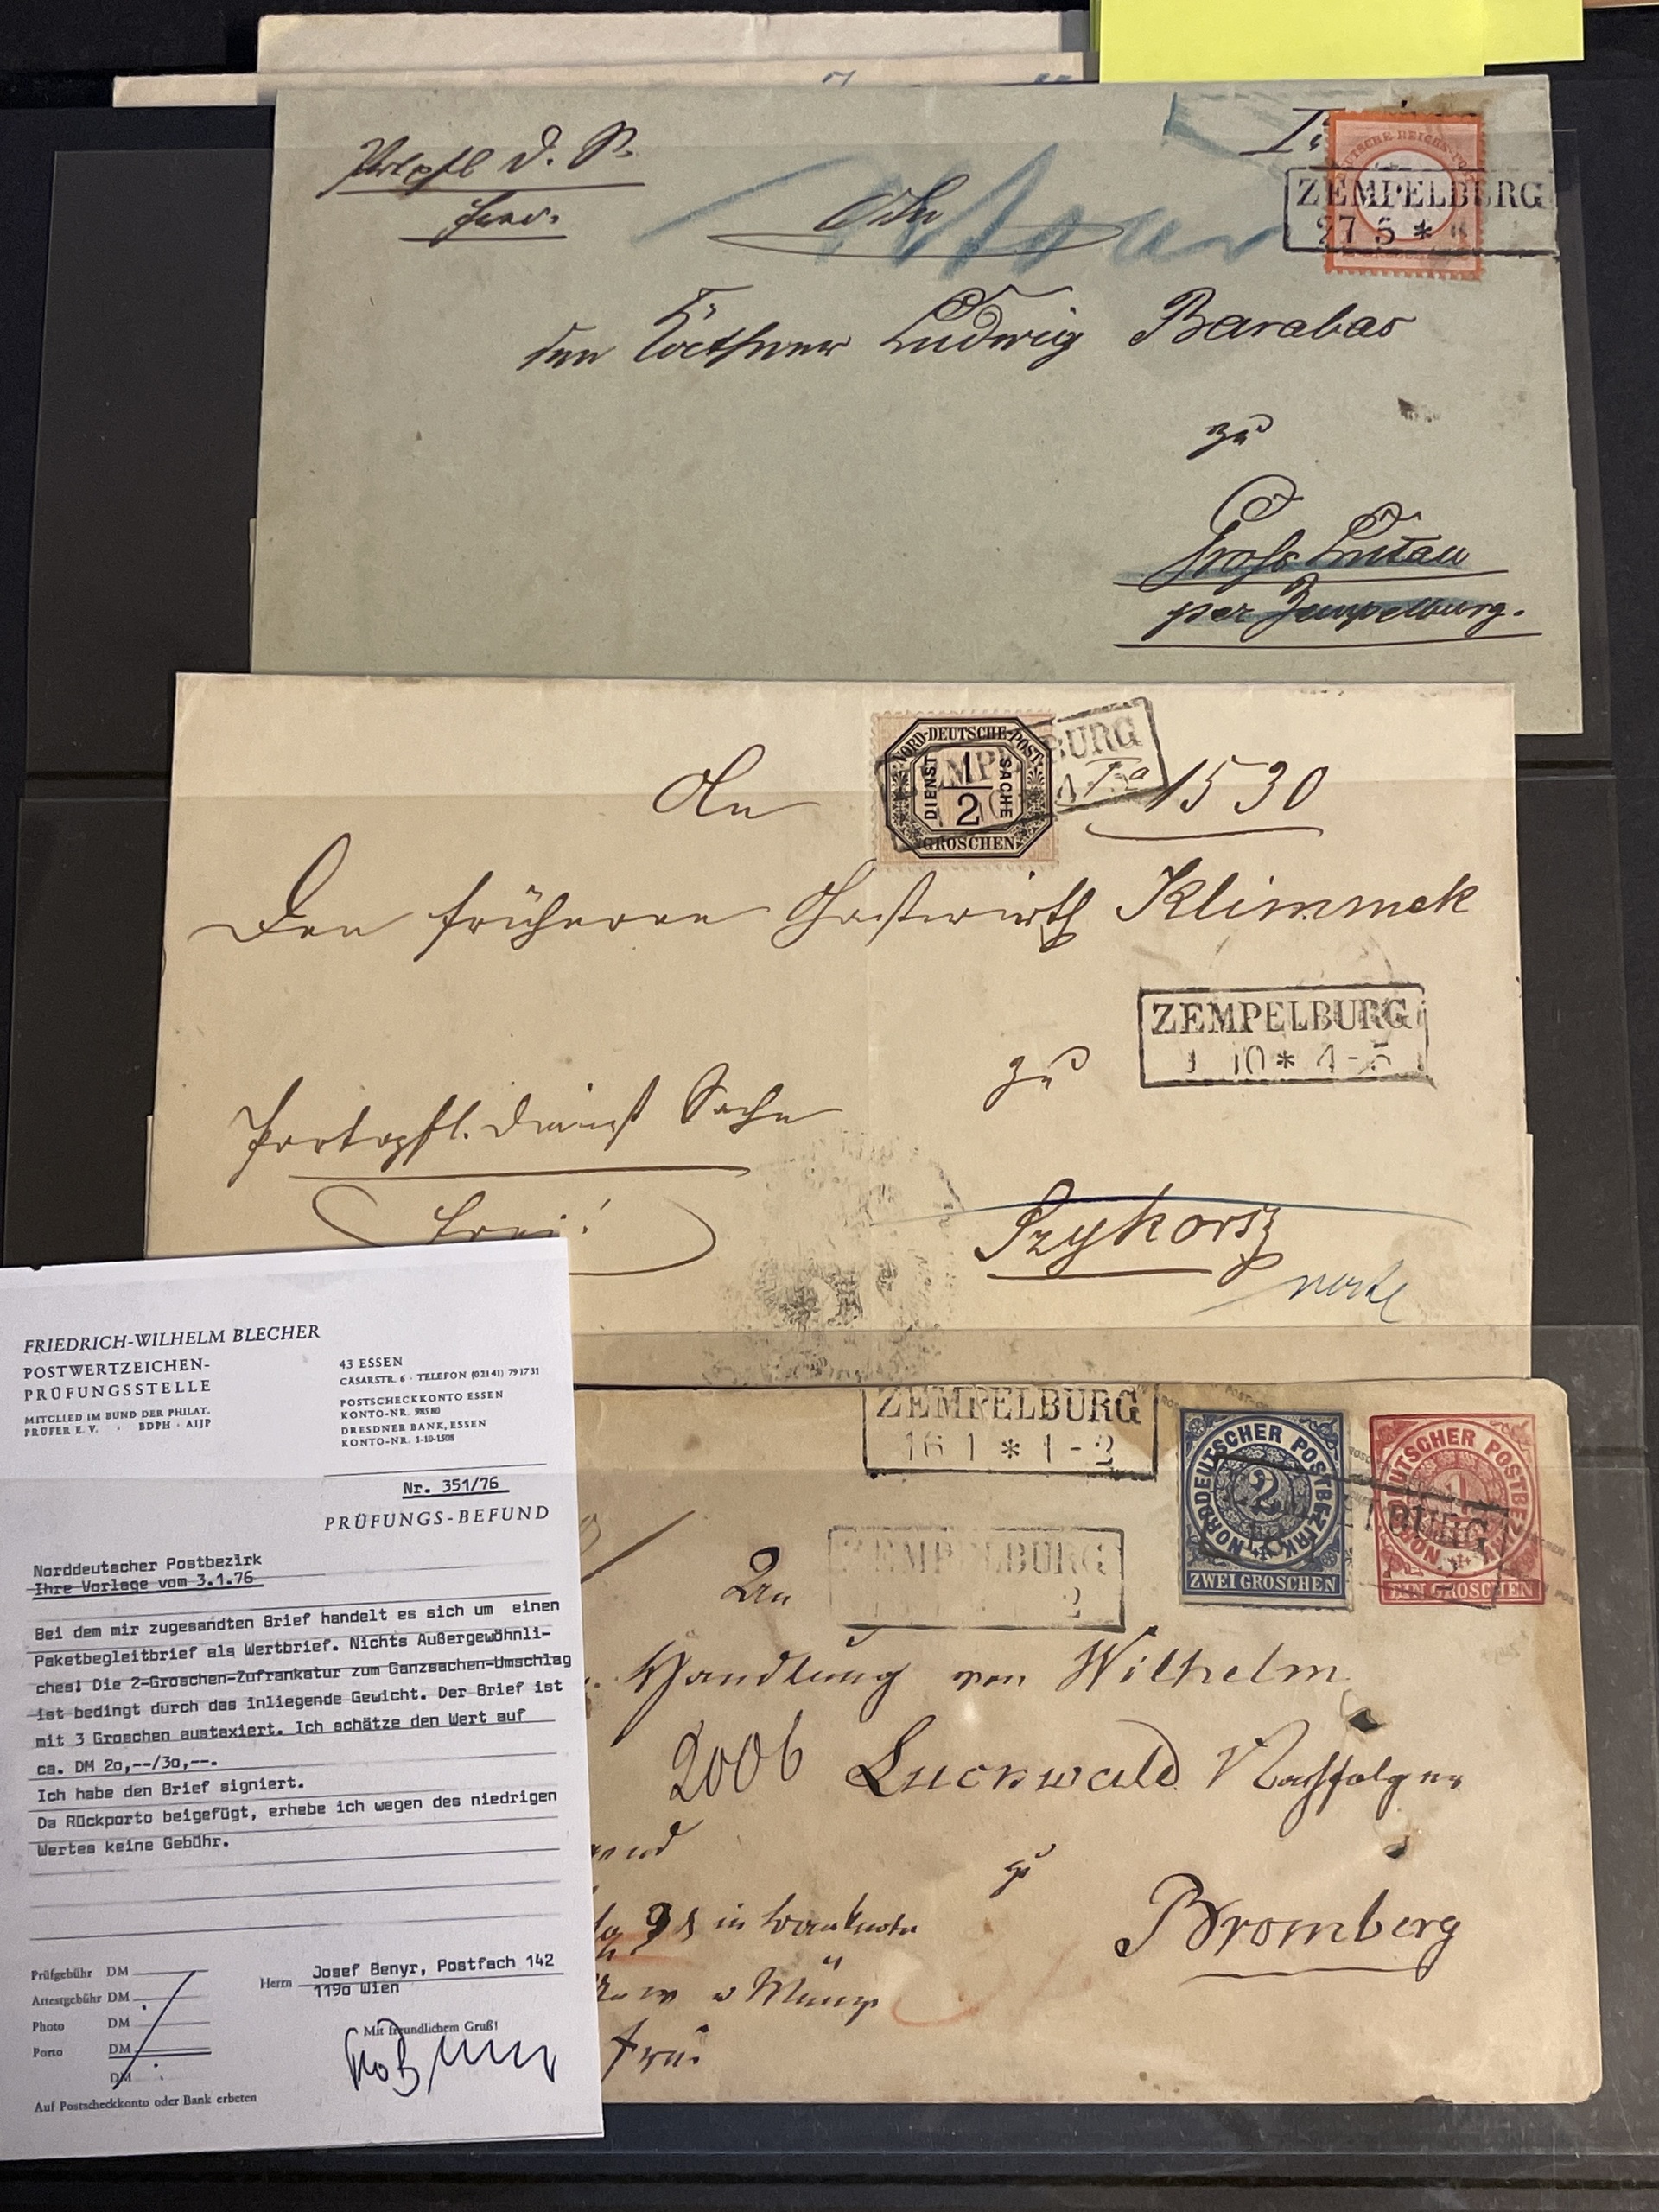 Portopfl. D. S.
frei.
An
DEUTSCHE REICHS-POST
ZEMPELBURG
27 5 *
den Käthner Ludwig Barabas
zu
Groß Lutau
per Zempelburg.
An
NORD-DEUTSCHE-POST
DIENST 1/2 SACHE
GROSCHEN
BURG
1530
Den früheren Gastwirth Klimmek
ZEMPELBURG
10 * 4-5
zu
Portopfl. Dienst Sache
frei!
ZEMPELBURG
16 1 * 1-2
NORDDEUTSCHER POSTBEZIRK
2
ZWEI GROSCHEN
1
EIN GROSCHEN
BURG
An
ZEMPELBURG
2
Handlung von Wilhelm
2006 Luckwald Nachfolger
zu
Bromberg
in
frei
FRIEDRICH-WILHELM BLECHER
POSTWERTZEICHEN-
PRÜFUNGSSTELLE
MITGLIED IM BUND DER PHILAT.
PRÜFER E. V. · BDPH · AIJP
43 ESSEN
CÄSARSTR. 6 · TELEFON (02141) 791731
POSTSCHECKKONTO ESSEN
KONTO-NR. 98580
DRESDNER BANK, ESSEN
KONTO-NR. 1-10-1508
Nr. 351/76
PRÜFUNGS-BEFUND
Norddeutscher Postbezirk
Ihre Vorlage vom 3.1.76
Bei dem mir zugesandten Brief handelt es sich um einen
Paketbegleitbrief als Wertbrief. Nichts Außergewöhnli-
ches! Die 2-Groschen-Zufrankatur zum Ganzsachen-Umschlag
ist bedingt durch das inliegende Gewicht. Der Brief ist
mit 3 Groschen austaxiert. Ich schätze den Wert auf
ca. DM 2o,--/3o,--.
Ich habe den Brief signiert.
Da Rückporto beigefügt, erhebe ich wegen des niedrigen
Wertes keine Gebühr.
Prüfgebühr DM
Attestgebühr DM
Photo DM
Porto DM
DM
Auf Postscheckkonto oder Bank erbeten
Herrn Josef Benyr, Postfach 142
119o Wien
Mit freundlichem Gruß!